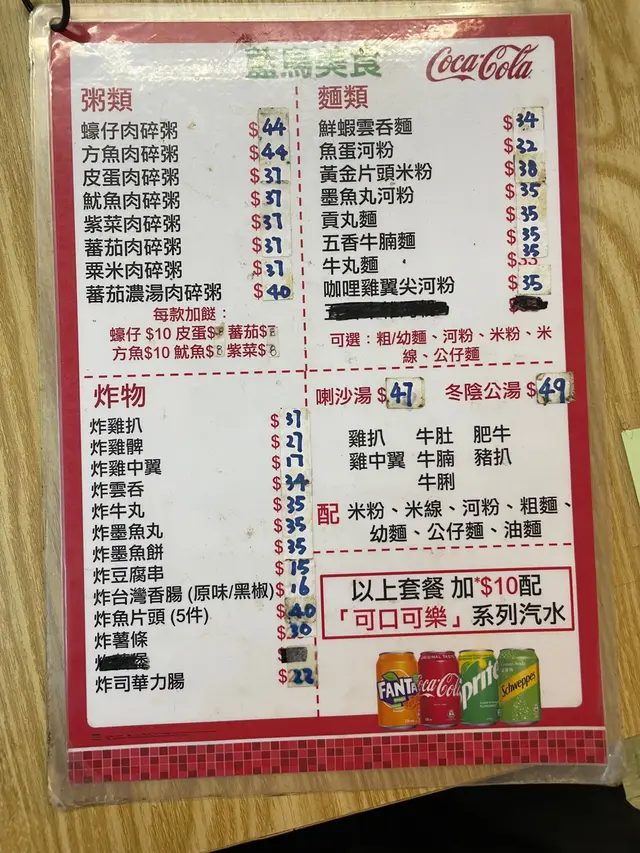 藍鳥美食
Coca-Cola
粥類
蠔仔肉碎粥 $44
方魚肉碎粥 $44
皮蛋肉碎粥 $37
魷魚肉碎粥 $37
紫菜肉碎粥 $37
蕃茄肉碎粥 $37
粟米肉碎粥 $37
蕃茄濃湯肉碎粥 $40
每款加餸：
蠔仔 $10 皮蛋$8 蕃茄$8
方魚$10 魷魚$8 紫菜$8
麵類
鮮蝦雲吞麵 $34
魚蛋河粉 $32
黃金片頭米粉 $38
墨魚丸河粉 $35
貢丸麵 $35
五香牛腩麵 $35
牛丸麵 $35
咖哩雞翼尖河粉 $35
可選：粗/幼麵、河粉、米粉、米
線、公仔麵
炸物
炸雞扒 $37
炸雞髀 $27
炸雞中翼 $17
炸雲吞 $34
炸牛丸 $35
炸墨魚丸 $35
炸墨魚餅 $35
炸豆腐串 $15
炸台灣香腸 (原味/黑椒) $16
炸魚片頭 (5件) $40
炸薯條 $30
炸司華力腸 $22
喇沙湯 $47 冬陰公湯 $49
雞扒 牛肚 肥牛
雞中翼 牛腩 豬扒
牛脷
配 米粉、米線、河粉、粗麵、
幼麵、公仔麵、油麵
以上套餐 加*$10配
「可口可樂」系列汽水
FANTA
ORIGINAL TASTE
Coca-Cola
Sprite
Schweppes